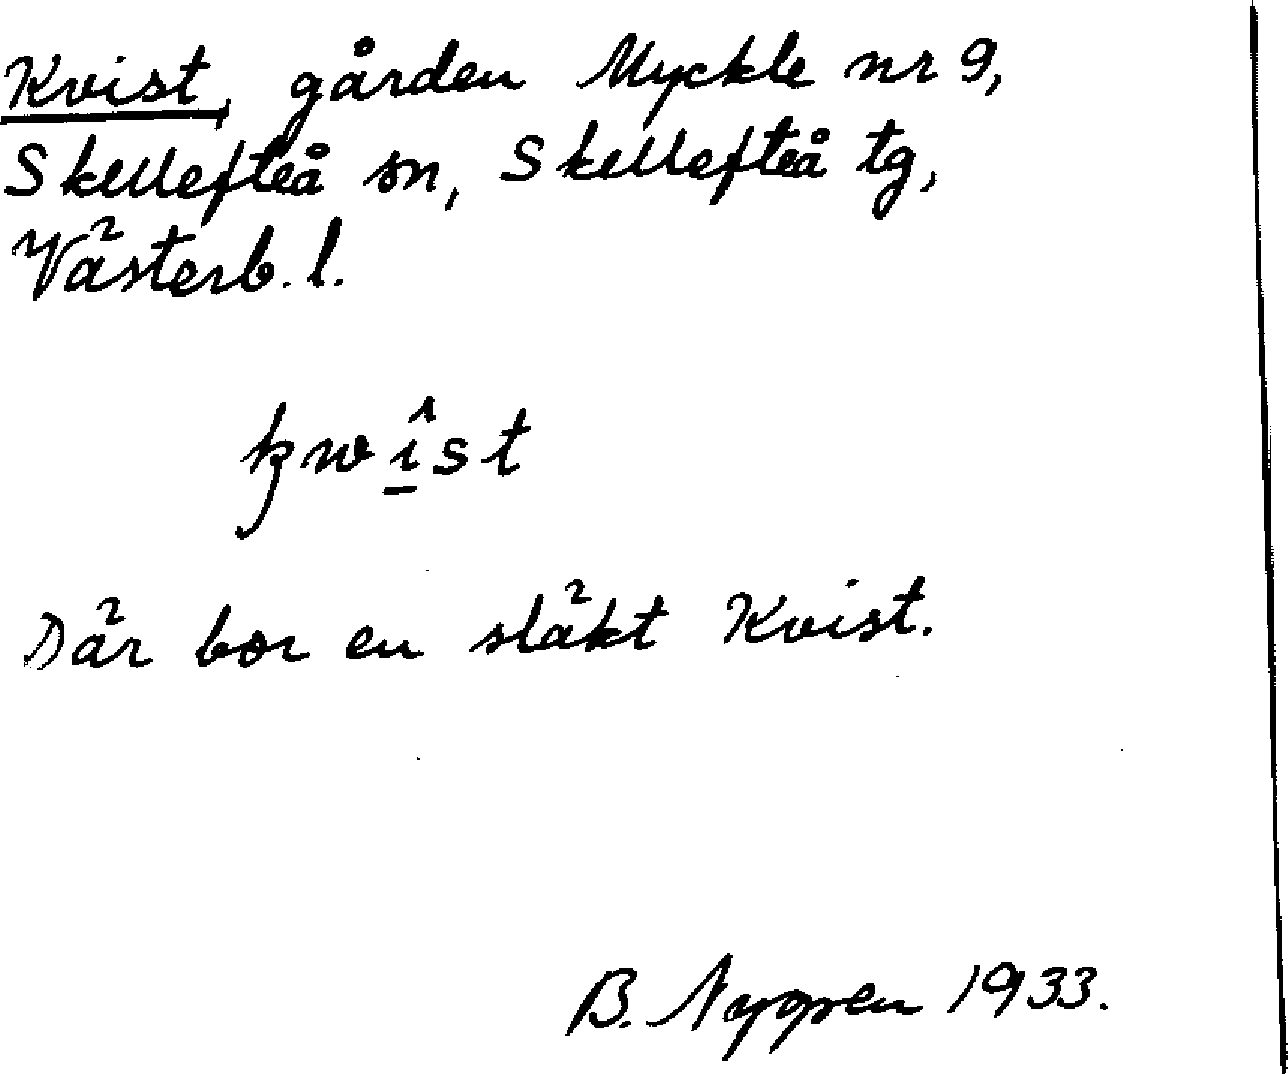 Kvist, gården Myckle nr 9,
Skellefteå sn, Skellefteå tg,
Västerb. l.
kwî̲st
Där bor en släkt Kvist.
B. Nygren 1933.